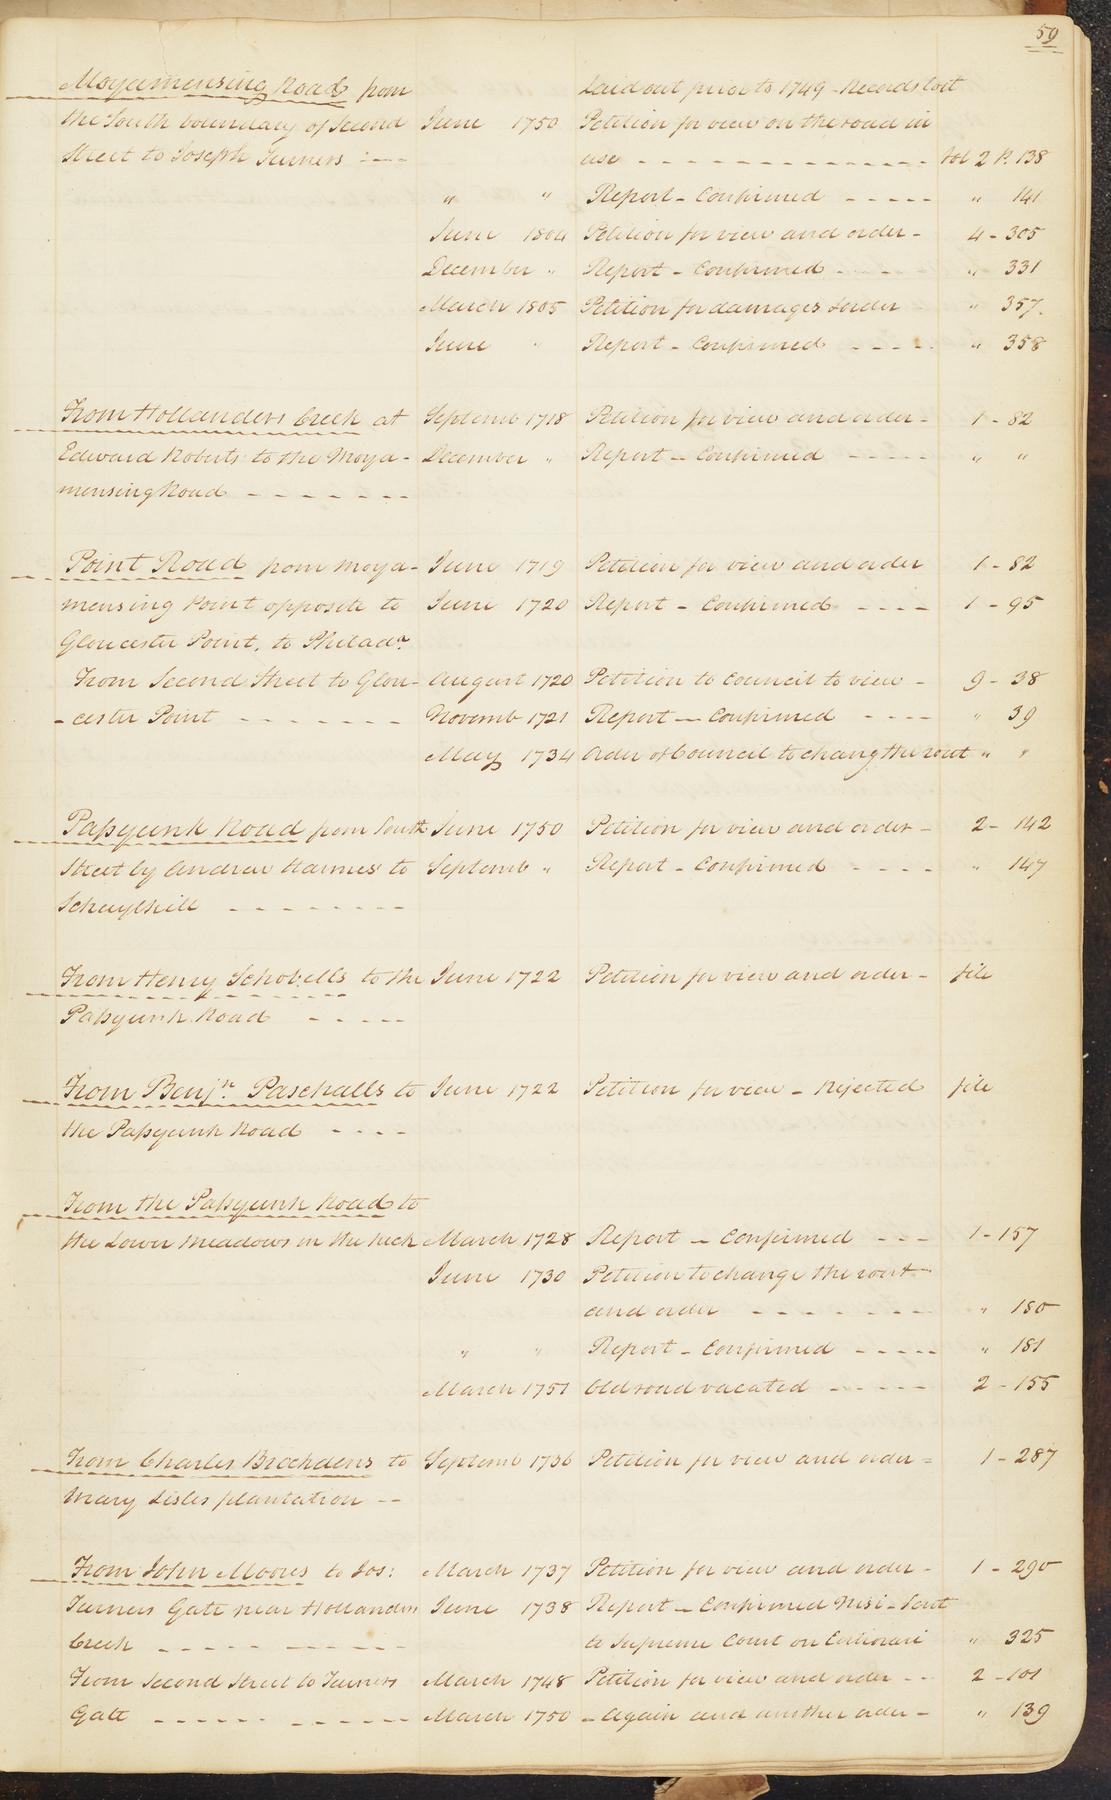 59
Moyamensing Road from Laid out prior to 1749 - Records lost
the South boundary of Second June 1750 Petition for view on the road in
Street to Joseph Turners :--- use - - - - - - - - - - - - - - Vol 2 P. 138
" " Report - Confirmed - - - - - " 141
June 1804 Petition for view and order - 4 - 305
December " Report - Confirmed - - - - " 331
March 1805 Petition for damages & order " 357.
June " Report - Confirmed - - - - - " 358
From Hollanders Creek at Septemb 1718 Petition for view and order - 1 - 82
Edward Roberts to the Moya- December " Report - Confirmed - - - - - " "
mensing Road - - - - - - -
Point Road from Moya- June 1719 Petition for view and order 1 - 82
mensing Point opposite to June 1720 Report - Confirmed - - - - 1 - 95
Gloucester Point, to Philada.
From Second Street to Glou- August 1720 Petition to Council to view - 9 - 38
-cester Point - - - - - - - Novemb 1721 Report - Confirmed - - - - " 39
May 1734 Order of Council to chang the rout " "
Passyunk Road from South June 1750 Petition for view and order - 2 - 142
Street by Andrew Hannes to Septemb " Report - Confirmed - - - - " 147
Schuylkill - - - - - - - -
From Henry Schobells to the June 1722 Petition for view and order - file
Passyunk Road - - - - -
From Benjn. Paschalls to June 1722 Petition for view - Rejected file
the Passyunk Road - - - -
From the Passyunk Road to
the Lower Meadows in the neck March 1728 Report - Confirmed - - - 1 - 157
June 1730 Petition to change the rout
and order - - - - - - - " 180
" " Report - Confirmed - - - - - " 181
March 1751 Old road vacated - - - - - 2 - 155
From Charles Brockdens to Septemb 1736 Petition for view and order - 1 - 287
Mary Lisles plantation --
From John Moores to Jos: March 1737 Petition for view and order - 1 - 290
Turners Gate near Hollanders June 1738 Report - Confirmed Nisi - Sent
Creek - - - - - - - - - - - to Supreme Court on Certiorari " 325
From Second Street to Turners March 1748 Petition for view and order - - 2 - 101
Gate - - - - - - - - - - - March 1750 - Again and another order - " 139